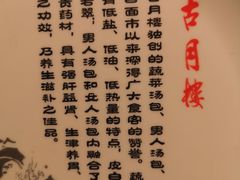 古月楼
月楼独创的蔬菜汤包、男人汤包、
面市以来深得广大食客的赞誉。蔬
有低盐、低油、低热量的特点，皮白
若翠；男人汤包和女人汤包内融合了
贵药材，具有强肝益肾、生津养胃、
之功效，乃养生滋补之佳品。